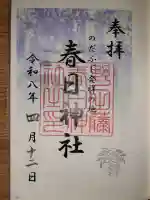 奉拝
のだふじ発祥の地
春日神社
令和八年 四月十二日